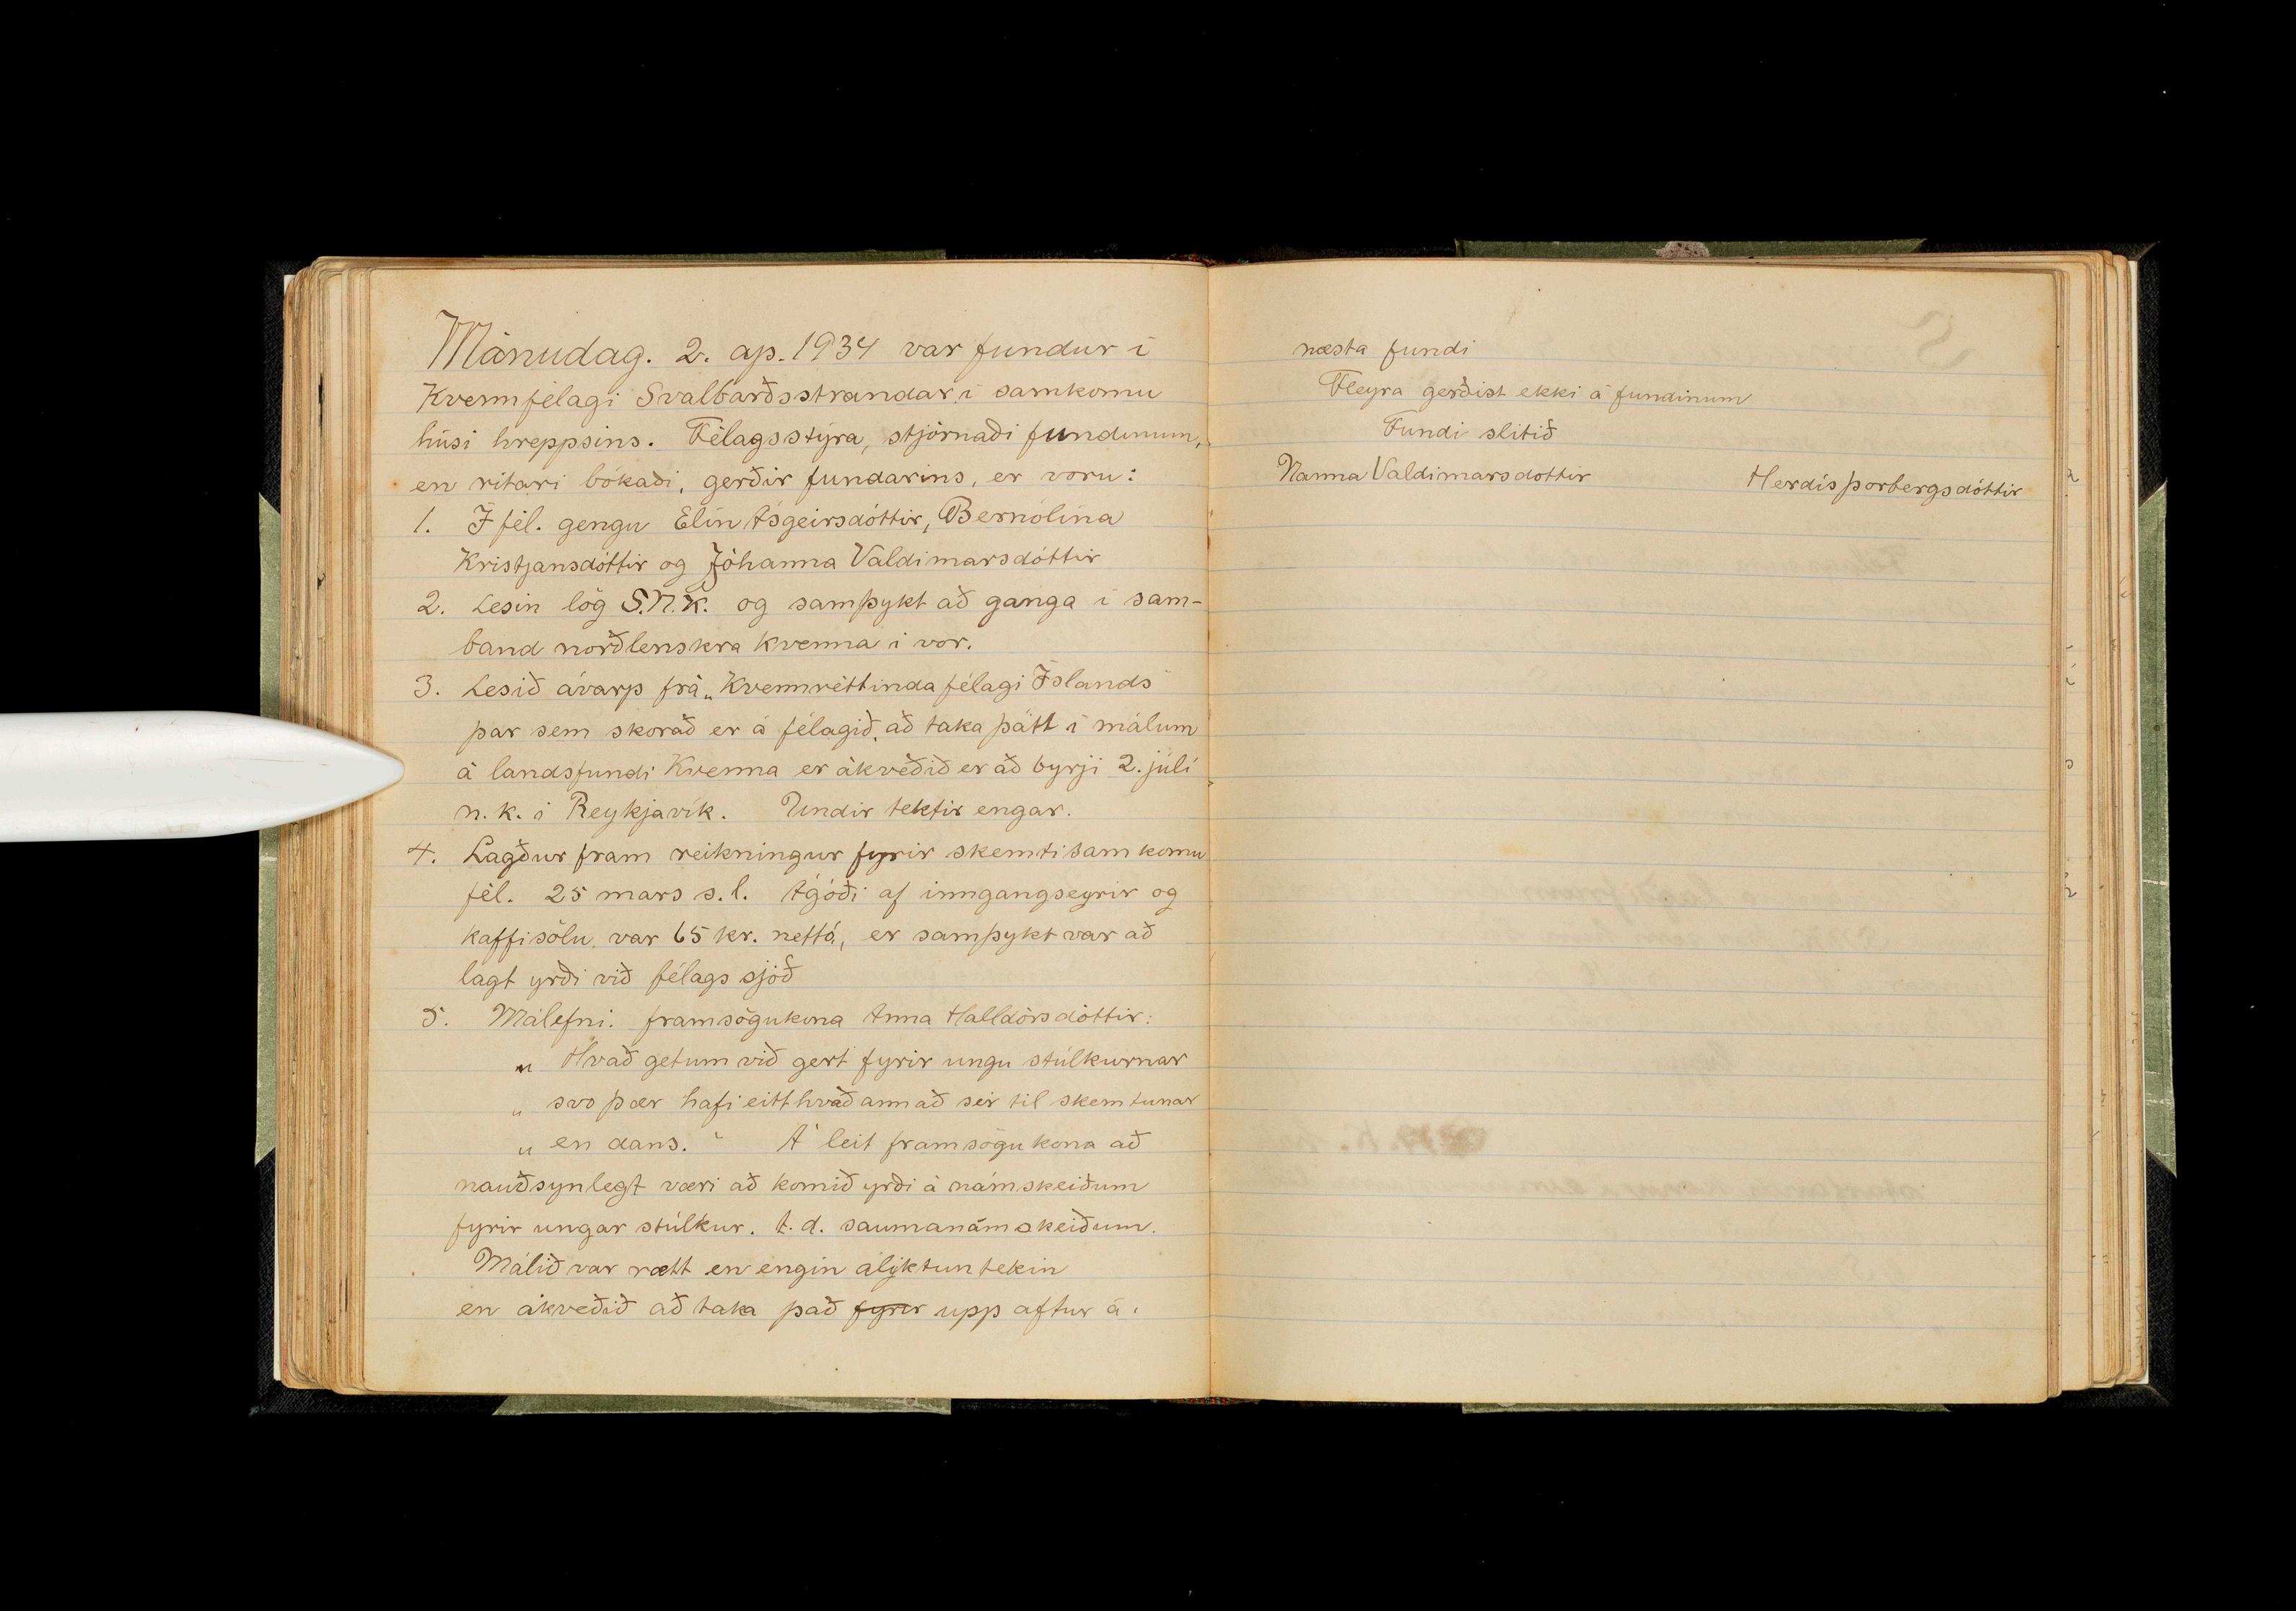 Mánudag. 2. ap. 1934 var fundur í
Kvennfélagi Svalbarðsstrandar í samkomu
húsi hreppsins. Félagsstýra, stjórnaði fundinum,
en ritari bókaði, gerðir fundarins, er voru:
1. Í fél. gengu Elín Ásgeirsdóttir, Bernólína
Kristjansdóttir og Jóhanna Valdimarsdóttir
2. Lesin lög S.N.K. og samþykt að ganga í sam-
band norðlenskra kvenna í vor.
3. Lesið ávarp frá „Kvennréttinda félagi Íslands"
þar sem skorað er á félagið, að taka þátt í málum
á landsfundi Kvenna er ákveðið er að byrji 2. júlí
n.k. í Reykjavík. Undir tektir engar.
4. Lagður fram reikningur fyrir skemtisamkomu
fél. 25 mars s.l. Ágóði af inngangseyrir og
kaffisölu var 65 kr. nettó, er samþykt var að
lagt yrði við félags sjóð
5. Málefni. framsögukona Anna Halldórsdóttir:
„ Hvað getum við gert fyrir ungu stúlkurnar
„ svo þær hafi eitthvað annað sér til skemtunar
„ en dans. " Á leit framsögukona að
nauðsynlegt væri að komið yrði á námskeiðum
fyrir ungar stúlkur. t.d. saumanámskeiðum.
Málið var rætt en engin ályktun tekin
en ákveðið að taka það fyrir upp aftur á.
næsta fundi
Fleyra gerðist ekki á fundinum
Fundi slitið
Nanna Valdimarsdottir Herdís Þorbergsdóttir